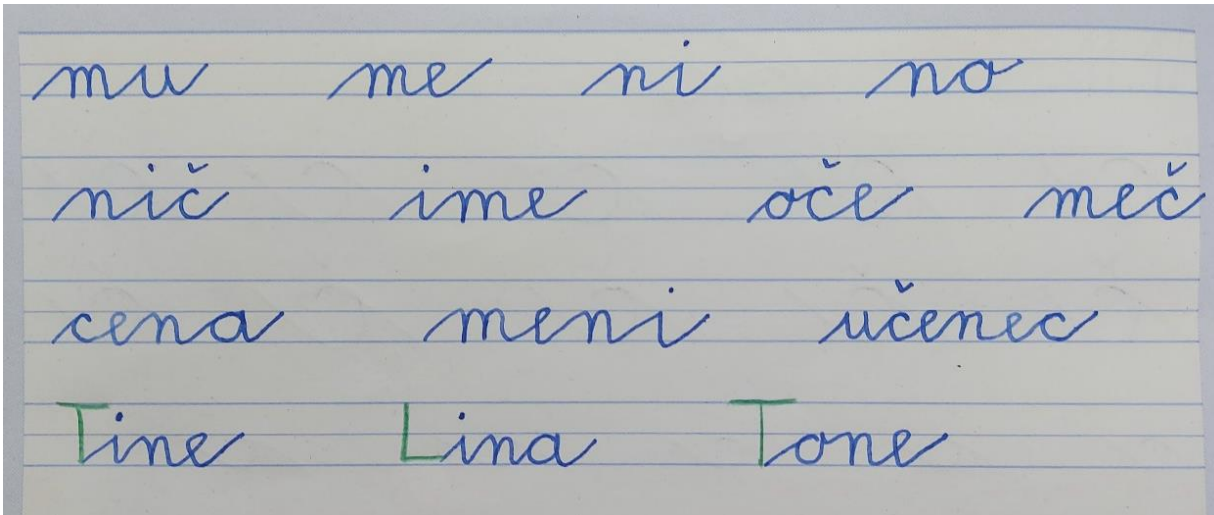 mu me ni no
nič ime oče meč
cena meni učenec
Tine Lina Tone